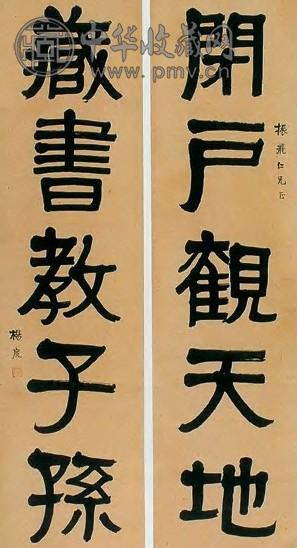 中华收藏网
www.pmv.cn
閉戶觀天地
振飛仁兄正
藏書教子孫